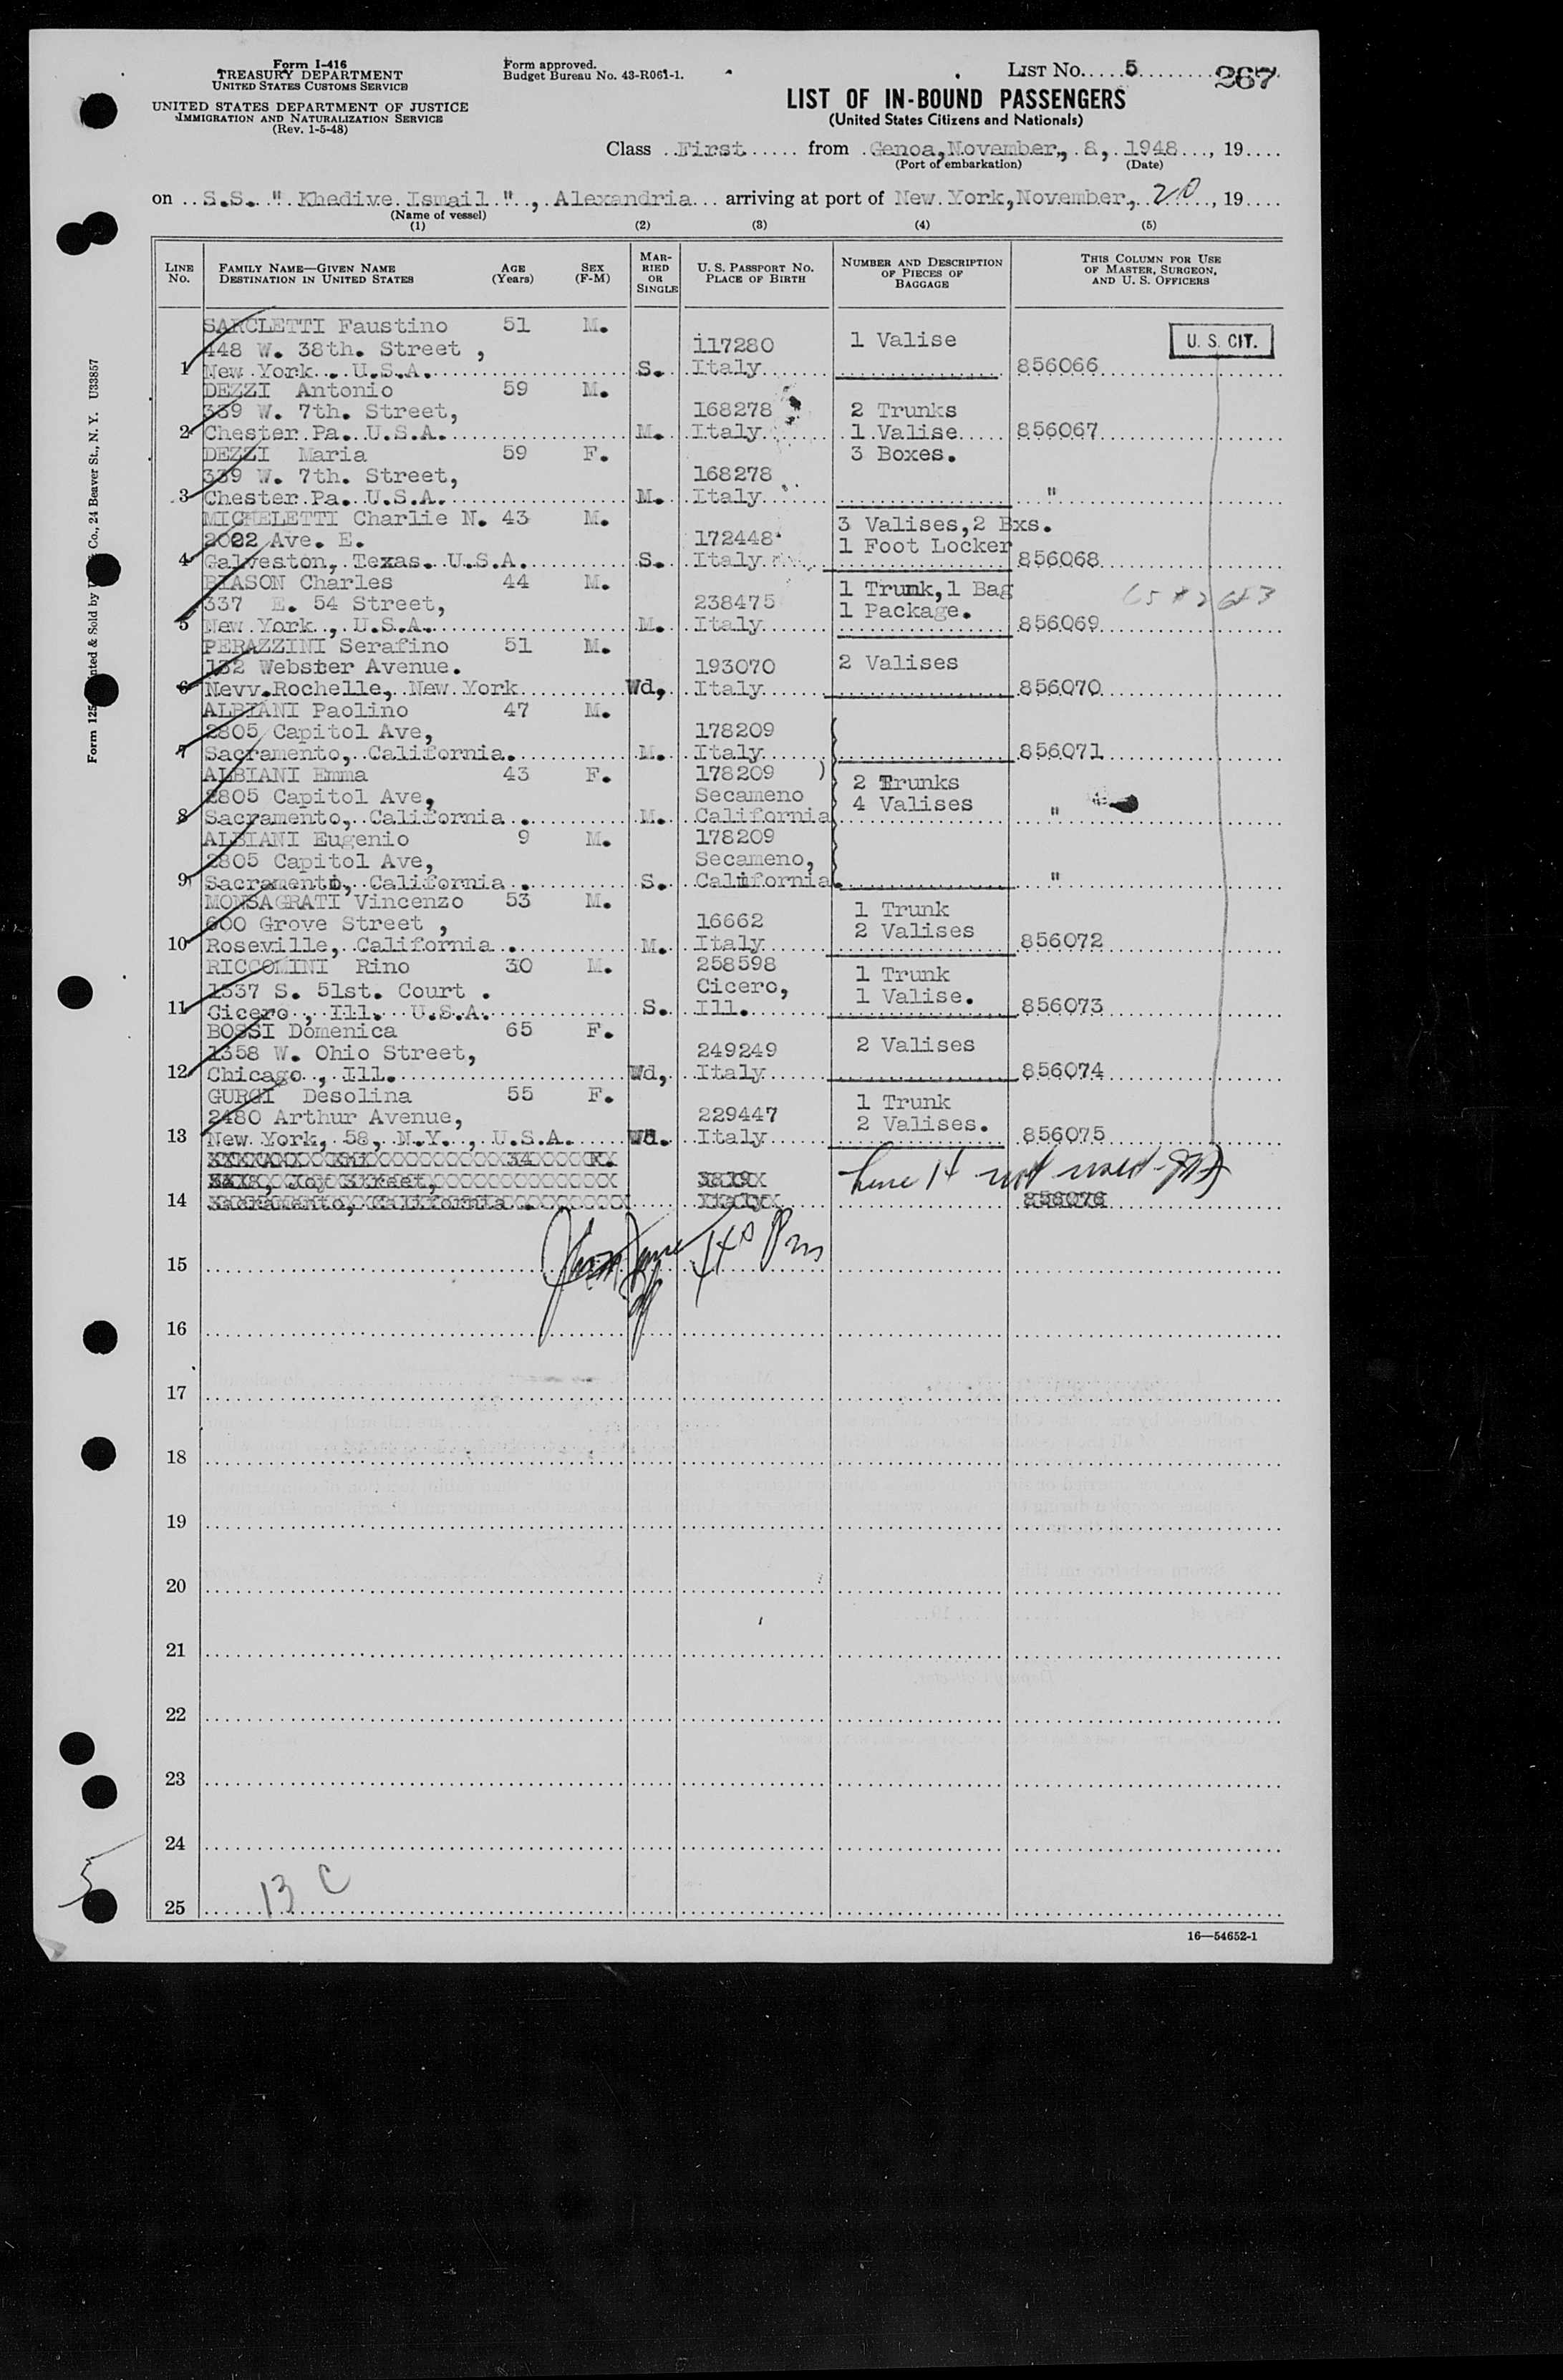 Form I-416
TREASURY DEPARTMENT
UNITED STATES CUSTOMS SERVICE
UNITED STATES DEPARTMENT OF JUSTICE
IMMIGRATION AND NATURALIZATION SERVICE
(Rev. 1-5-48)
Form approved.
Budget Bureau No. 43-R061-1.
LIST No. 5 267
LIST OF IN-BOUND PASSENGERS
(United States Citizens and Nationals)
Class First from Genoa, November, 8, 1948, 19
(Port of embarkation) (Date)
on S.S. " Khedive Ismail ", Alexandria arriving at port of New York, November, 20, 19
(Name of vessel)
(1) (2) (3) (4) (5)
LINE No. FAMILY NAME—GIVEN NAME DESTINATION IN UNITED STATES AGE (Years) SEX (F-M) MARRIED OR SINGLE U. S. PASSPORT No. PLACE OF BIRTH NUMBER AND DESCRIPTION OF PIECES OF BAGGAGE THIS COLUMN FOR USE OF MASTER, SURGEON, AND U. S. OFFICERS
SARCLETTI Faustino 51 M.
448 W. 38th. Street , 117280 1 Valise U. S. CIT.
1 New York . U.S.A. S. Italy 856066
DEZZI Antonio 59 M.
339 W. 7th. Street, 168278 2 Trunks
2 Chester Pa. U.S.A. M. Italy 1 Valise 856067
DEZZI Maria 59 F. 3 Boxes.
339 W. 7th. Street, 168278
3 Chester Pa. U.S.A. M. Italy "
MICHELETTI Charlie N. 43 M. 3 Valises,2 Bxs.
2022 Ave. E. 172448 1 Foot Locker
4 Galveston, Texas. U.S.A. S. Italy 856068
BIASON Charles 44 M. 1 Trunk,1 Bag
337 E. 54 Street, 238475 1 Package.
5 New York , U.S.A. M. Italy 856069
PERAZZINI Serafino 51 M.
132 Webster Avenue. 193070 2 Valises
6 Nevv.Rochelle, New York Wd, Italy 856070
ALBIANI Paolino 47 M.
2805 Capitol Ave, 178209
7 Sacramento, California. M. Italy 856071
ALBIANI Emma 43 F. 178209 )
2805 Capitol Ave, Secameno 2 Trunks
8 Sacramento, California . M. California 4 Valises "
ALBIANI Eugenio 9 M. 178209
2805 Capitol Ave, Secameno,
9 Sacramento, California . S. California. "
MONSAGRATI Vincenzo 53 M. 1 Trunk
600 Grove Street , 16662 2 Valises
10 Roseville, California . M. Italy 856072
RICCOMINI Rino 30 M. 258598 1 Trunk
1337 S. 51st. Court . Cicero, 1 Valise.
11 Cicero , Ill. U.S.A. S. Ill. 856073
BOSSI Domenica 65 F.
1358 W. Ohio Street, 249249 2 Valises
12 Chicago , Ill. Wd, Italy 856074
GURGI Desolina 55 F. 1 Trunk
2480 Arthur Avenue, 229447 2 Valises.
13 New York, 58, N.Y. , U.S.A. Wd. Italy 856075
34 F.
Joy Street,
14 Sacramento, California . Italy 856076
Line 14 not used
15
16
17
18
19
20
21
22
23
24
13 C
25
16—54652-1
Co., 24 Beaver St., N. Y. U33857